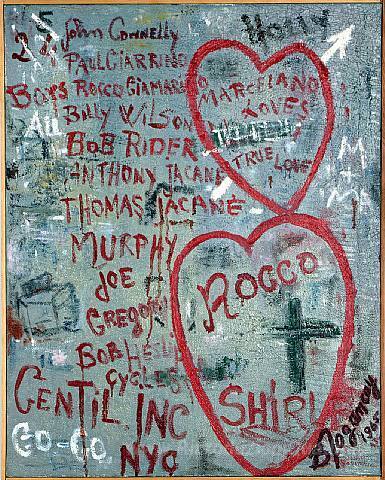 HOLLY
John Connelly
PAUL CIARRINO
BOYS ROCCO GIAMARINO
Billy WILSON
All
BOB RIDER
ANTHONY JACANE
THOMAS JACANE
MURPHY
JOE
GREGORY
BOB
CYCLES
GENTIL. INC
GO-GO
NYC
MARCELANO
LOVES
TRUE LOVE
M
+
M
ROCCO
+
SHIRL
1965